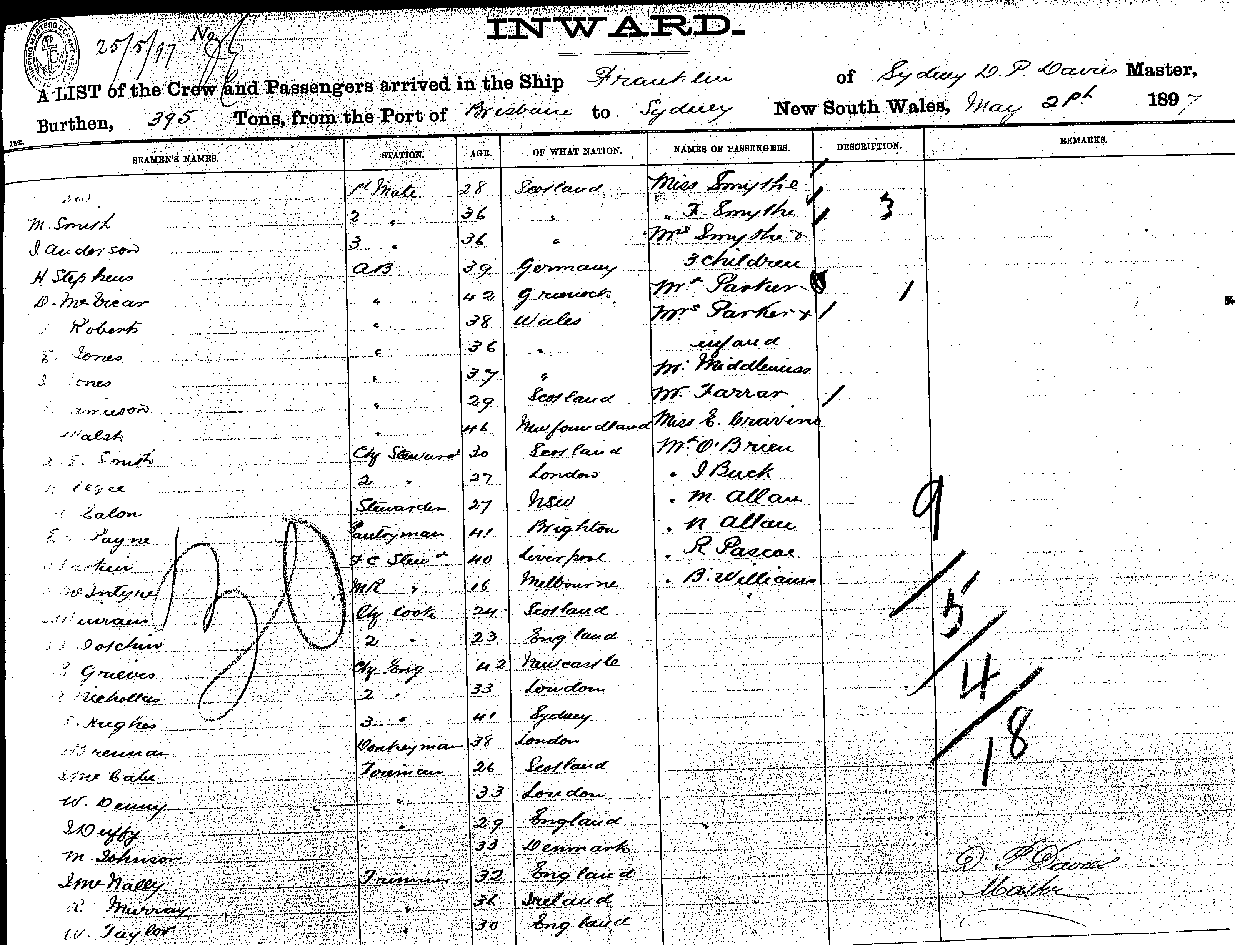 INWARD.
25/5/97 No
A LIST of the Crew and Passengers arrived in the Ship Franklin of Sydney D. P. Davies Master,
Burthen, 395 Tons, from the Port of Brisbane to Sydney New South Wales, May 1897
SEAMEN'S NAMES. STATION. AGE. OF WHAT NATION. NAMES OF PASSENGERS. DESCRIPTION. REMARKS.
1st Mate 28 Scotland Miss Smythe
M. Smith 2 " 36 " " F Smythe 3
J Anderson 3 " 36 " Mrs Smythe &
H Stephens AB 39 Germany 3 children
D. McVicar " 42 Greenock Mr Parker 1
Roberts " 38 Wales Mrs Parker +
Jones " 36 " infand
ones " 37 " Mr Middlemiss
" 29 Scotland Mr Farrar
Walsh " 46 Newfoundland Miss E. Cravino
Smith Chf Steward 30 Scotland Mr O'Brien
2 " 27 London " J Buck
Stewardess 27 NSW " M Allan
Payne Pantryman 41 Brighton " N Allan
F C Stewd 40 Liverpool " R Pascoe
McIntyre MR " 16 Melbourne " B. Williams
Chf Cook 24 Scotland
2 " 23 England
Grieves Chf Eng 42 Newcastle
2 " 33 London
Hughes 3 " 41 Sydney
Brennan Donkeyman 38 London
J McCabe Fireman 26 Scotland
W. Denny " 33 London
J Duffy " 29 England
M Johnson 33 Denmark
J McNally Trimmer 32 England
R. Murray " 36 Ireland
W. Taylor " 30 England
30
9
5
4
18
D. P. Davies
Master